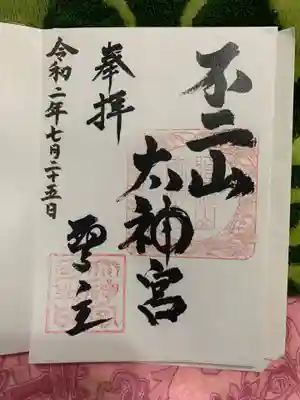 不二山
太神宮
奉拝
令和二年七月二十五日